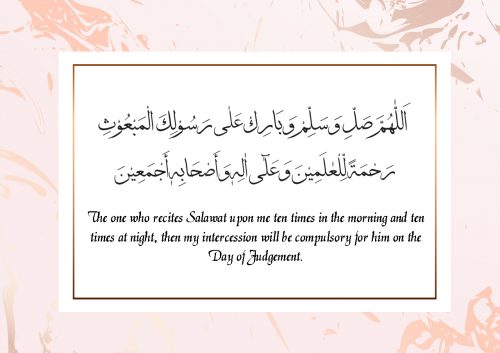 اَللّٰهُمَّ صَلِّ وَسَلِّمْ وَبَارِكْ عَلٰى رَسُوْلِكَ الْمَبْعُوْثِ
رَحْمَةً لِّلْعٰلَمِيْنَ وَعَلٰٓى اٰلِهٖ وَاَصْحَابِهٖ اَجْمَعِيْنَ
The one who recites Salawat upon me ten times in the morning and ten
times at night, then my intercession will be compulsory for him on the
Day of Judgement.